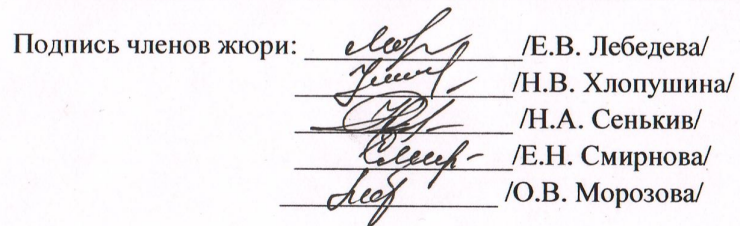 Подпись членов жюри: /Е.В. Лебедева/
/Н.В. Хлопушина/
/Н.А. Сенькив/
/Е.Н. Смирнова/
/О.В. Морозова/